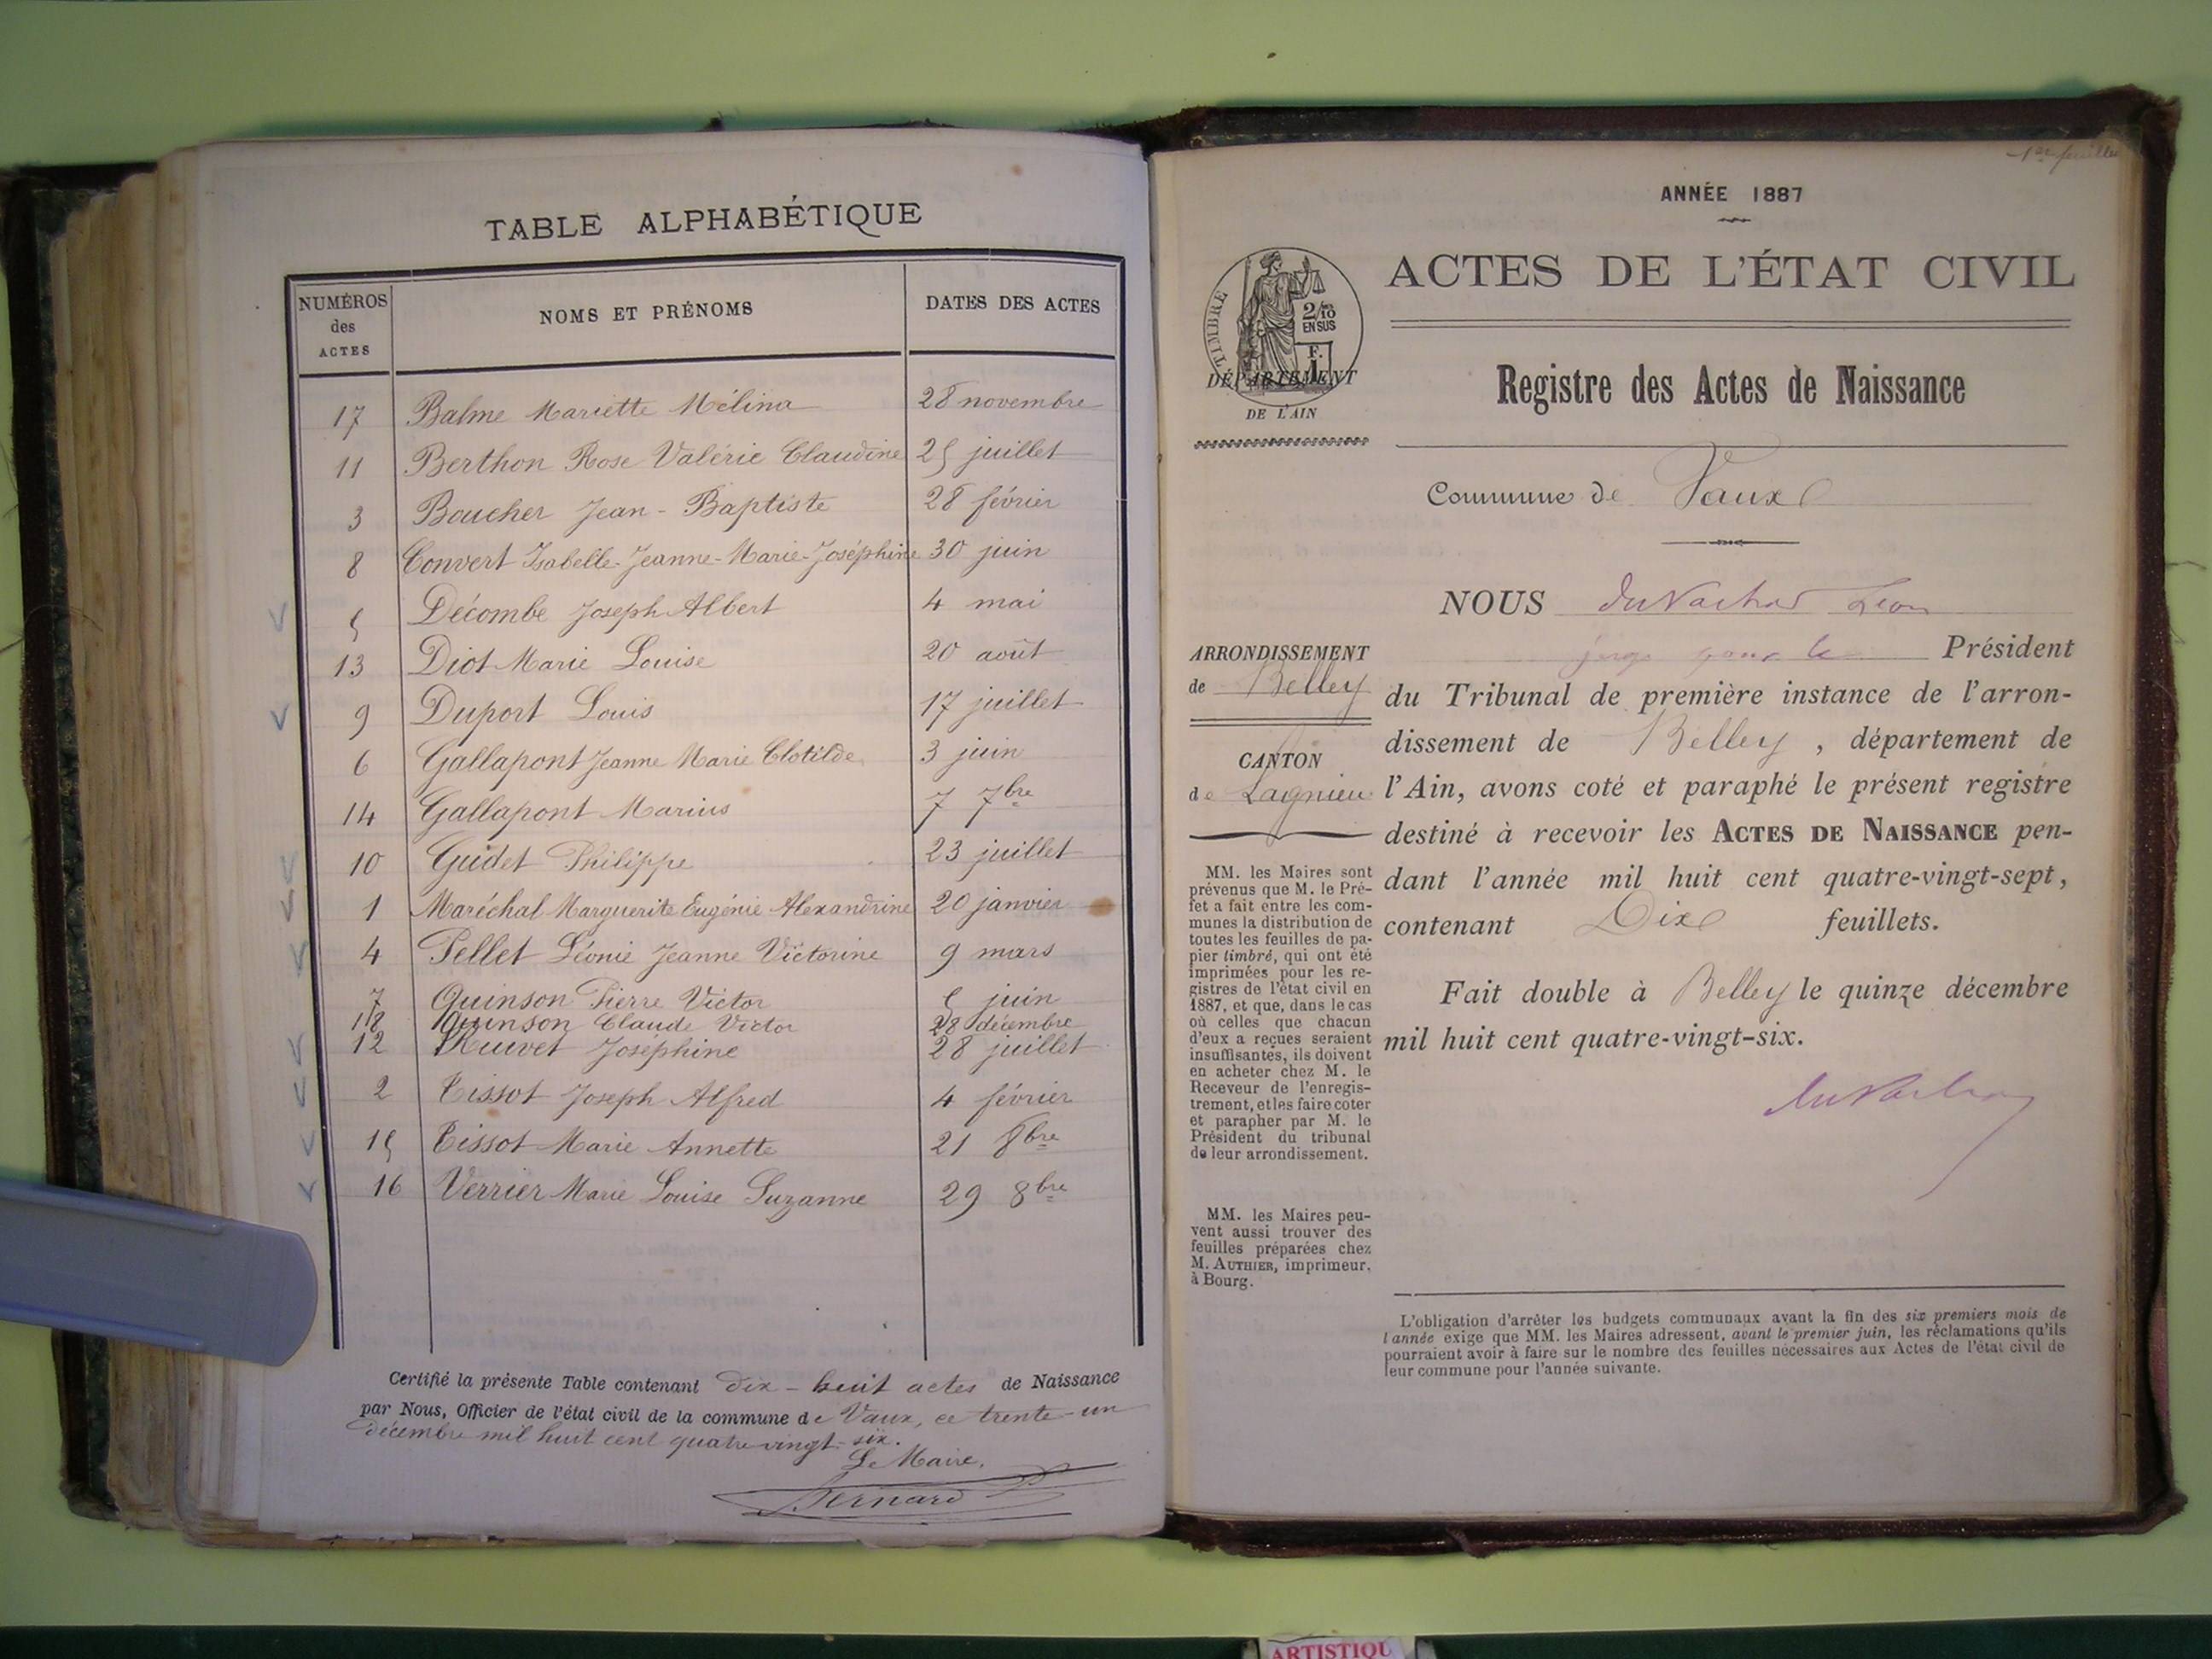 TABLE ALPHABÉTIQUE
NUMÉROS des ACTES NOMS ET PRÉNOMS DATES DES ACTES
17 Balme Mariette Mélina 28 novembre
11 Berthon Rose Valérie Claudine 25 juillet
3 Boucher Jean-Baptiste 28 février
8 Convert Isabelle-Jeanne-Marie-Joséphine 30 juin
5 Décombe Joseph Albert 4 mai
13 Diot Marie Louise 20 août
9 Duport Louis 17 juillet
6 Gallapont Jeanne Marie Clotilde 3 juin
14 Gallapont Marius 7 7bre
10 Gudet Philippe 23 juillet
1 Maréchal Marguerite Eugénie Alexandrine 20 janvier
4 Pellet Léonie Jeanne Victorine 9 mars
7 Quinson Pierre Victor 5 juin
18 Quinson Claude Victor 28 décembre
12 Ruivet Joséphine 28 juillet
2 Tissot Joseph Alfred 4 février
15 Tissot Marie Annette 21 8bre
16 Verrier Marie Louise Suzanne 29 8bre
Certifié la présente Table contenant dix-huit actes de Naissance
par Nous, Officier de l'état civil de la commune de Vaux, ce trente-un
décembre mil huit cent quatre vingt-six.
Le Maire,
Bernard
1er feuillet
ANNÉE 1887
ACTES DE L'ÉTAT CIVIL
TIMBRE
2/10
EN SUS
F.
1
DÉPARTEMENT
DE L'AIN
Registre des Actes de Naissance
Commune de Vaux
ARRONDISSEMENT
de Belley
CANTON
de Lagnieu
MM. les Maires sont
prévenus que M. le Pré-
fet a fait entre les com-
munes la distribution de
toutes les feuilles de pa-
pier timbré, qui ont été
imprimées pour les re-
gistres de l'état civil en
1887, et que, dans le cas
où celles que chacun
d'eux a reçues seraient
insuffisantes, ils doivent
en acheter chez M. le
Receveur de l'enregis-
trement, et les faire coter
et parapher par M. le
Président du tribunal
de leur arrondissement.
MM. les Maires peu-
vent aussi trouver des
feuilles préparées chez
M. AUTHIER, imprimeur,
à Bourg.
NOUS Léon
juge pour le Président
du Tribunal de première instance de l'arron-
dissement de Belley, département de
l'Ain, avons coté et paraphé le présent registre
destiné à recevoir les ACTES DE NAISSANCE pen-
dant l'année mil huit cent quatre-vingt-sept,
contenant Dix feuillets.
Fait double à Belley le quinze décembre
mil huit cent quatre-vingt-six.
L'obligation d'arrêter les budgets communaux avant la fin des six premiers mois de
l'année exige que MM. les Maires adressent, avant le premier juin, les réclamations qu'ils
pourraient avoir à faire sur le nombre des feuilles nécessaires aux Actes de l'état civil de
leur commune pour l'année suivante.
ARTISTIQU